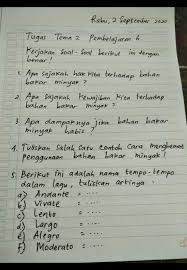 Rabu, 2 September 2020
Tugas Tema 2 Pembelajaran 6
Kerjakan Soal-Soal berikut ini dengan
benar!
1. Apa sajakah hak kita terhadap bahan
bakar minyak?
2. Apa sajakah kewajiban kita terhadap
bahan bakar minyak?
3. Apa dampaknya jika bahan bakar
minyak habis?
4. Tuliskan Salah satu contoh cara menghemat
penggunaan bahan bakar minyak!
5. Berikut ini adalah nama tempo-tempo
dalam lagu, tuliskan artinya
a) Andante = ....
b) Vivate = ....
c) Lento = ....
d) Largo = ....
e) Alegro = ....
f) Moderato = ....